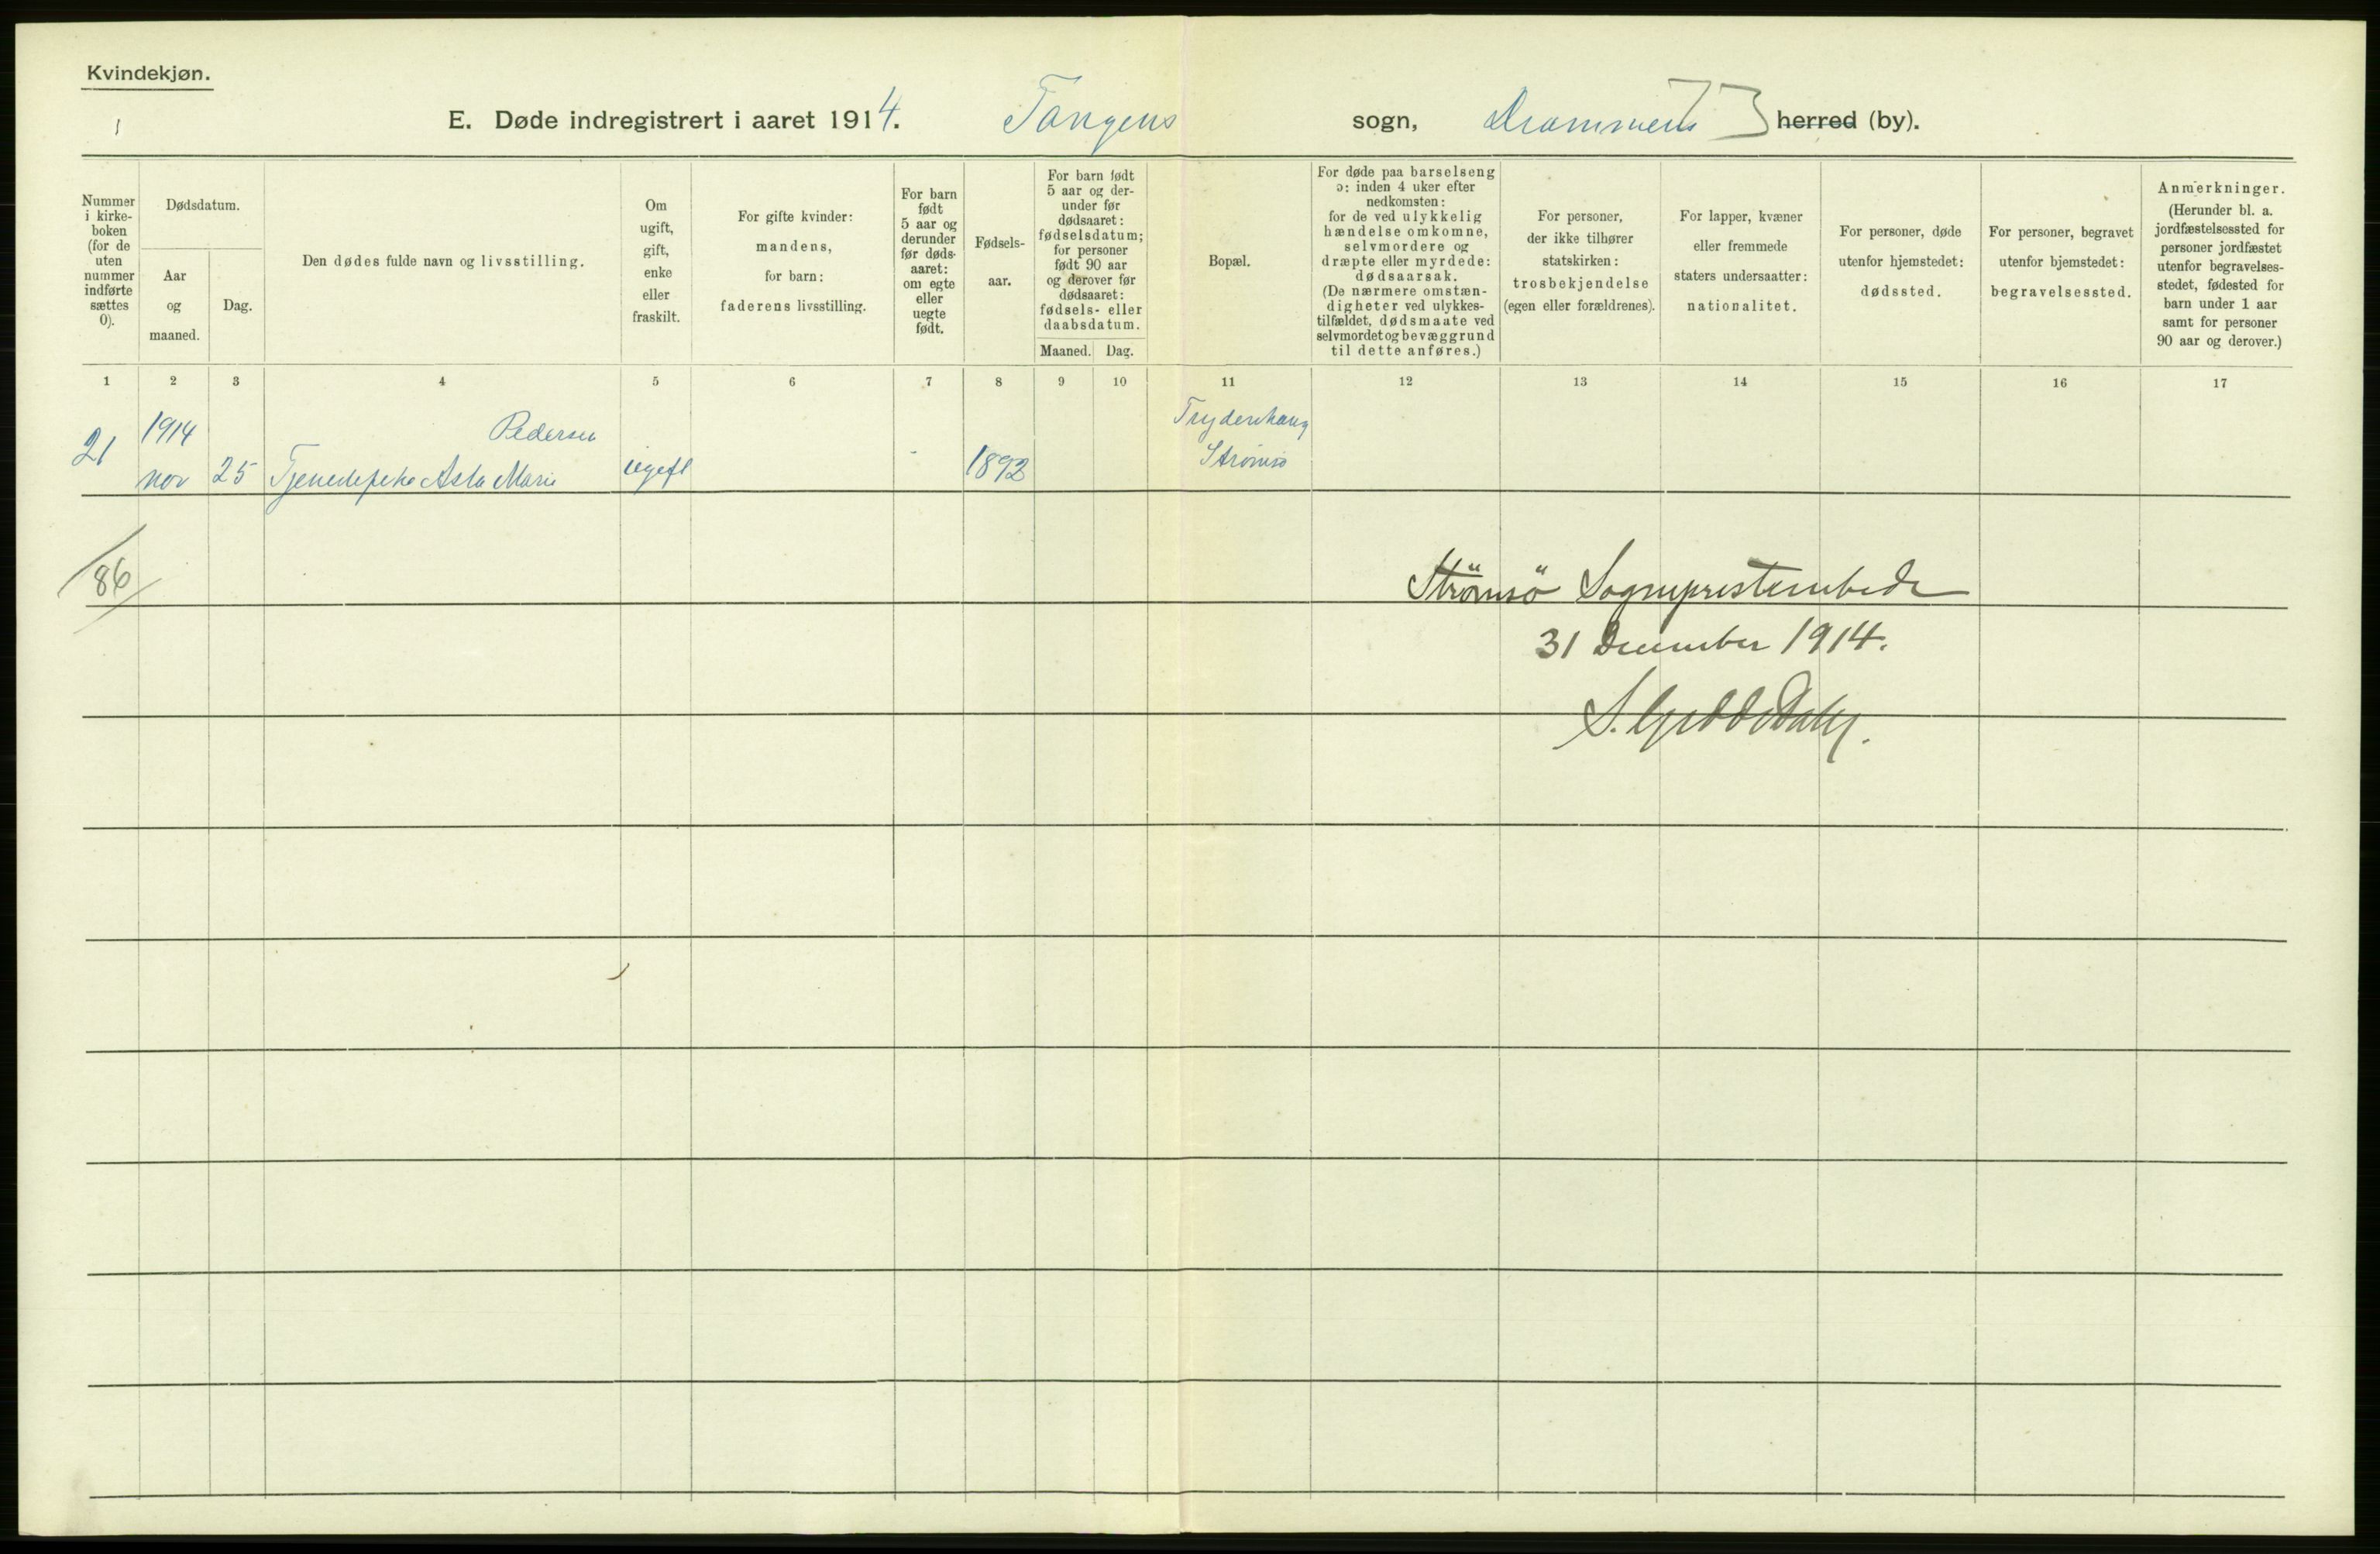 Kvindekjøn.
1
E. Døde indregistrert i aaret 1914. Tangens sogn, Drammens herred (by).
Nummer i kirke-boken (for de uten nummer indførte sættes 0).
Dødsdatum.
Aar og maaned.
Dag.
Den dødes fulde navn og livsstilling.
Om ugift, gift, enke eller fraskilt.
For gifte kvinder: mandens, for barn: faderens livsstilling.
For barn født 5 aar og derunder før døds-aaret: om egte eller uegte født.
Fødsels-aar.
For barn født 5 aar og der-under før dødsaaret: fødselsdatum; for personer født 90 aar og derover før dødsaaret: fødsels- eller daabsdatum.
Maaned. Dag.
Bopæl.
For døde paa barselseng ɔ: inden 4 uker efter nedkomsten: for de ved ulykkelig hændelse omkomne, selvmordere og dræpte eller myrdede: dødsaarsak. (De nærmere omstæn-digheter ved ulykkes-tilfældet, dødsmaate ved selvmordet og bevæggrund til dette anføres.)
For personer, der ikke tilhører statskirken: trosbekjendelse (egen eller forældrenes).
For lapper, kvæner eller fremmede staters undersaatter: nationalitet.
For personer, døde utenfor hjemstedet: dødssted.
For personer, begravet utenfor hjemstedet: begravelsessted.
Anmerkninger. (Herunder bl. a. jordfæstelsessted for personer jordfæstet utenfor begravelses-stedet, fødested for barn under 1 aar samt for personer 90 aar og derover.)
1 2 3 4 5 6 7 8 9 10 11 12 13 14 15 16 17
1914 Pedersen
21 nov 25 Tjenestepike Asla Marie ugift - 1892 Strømsø
86
Strömsö Sogneprestembede
31 December 1914.